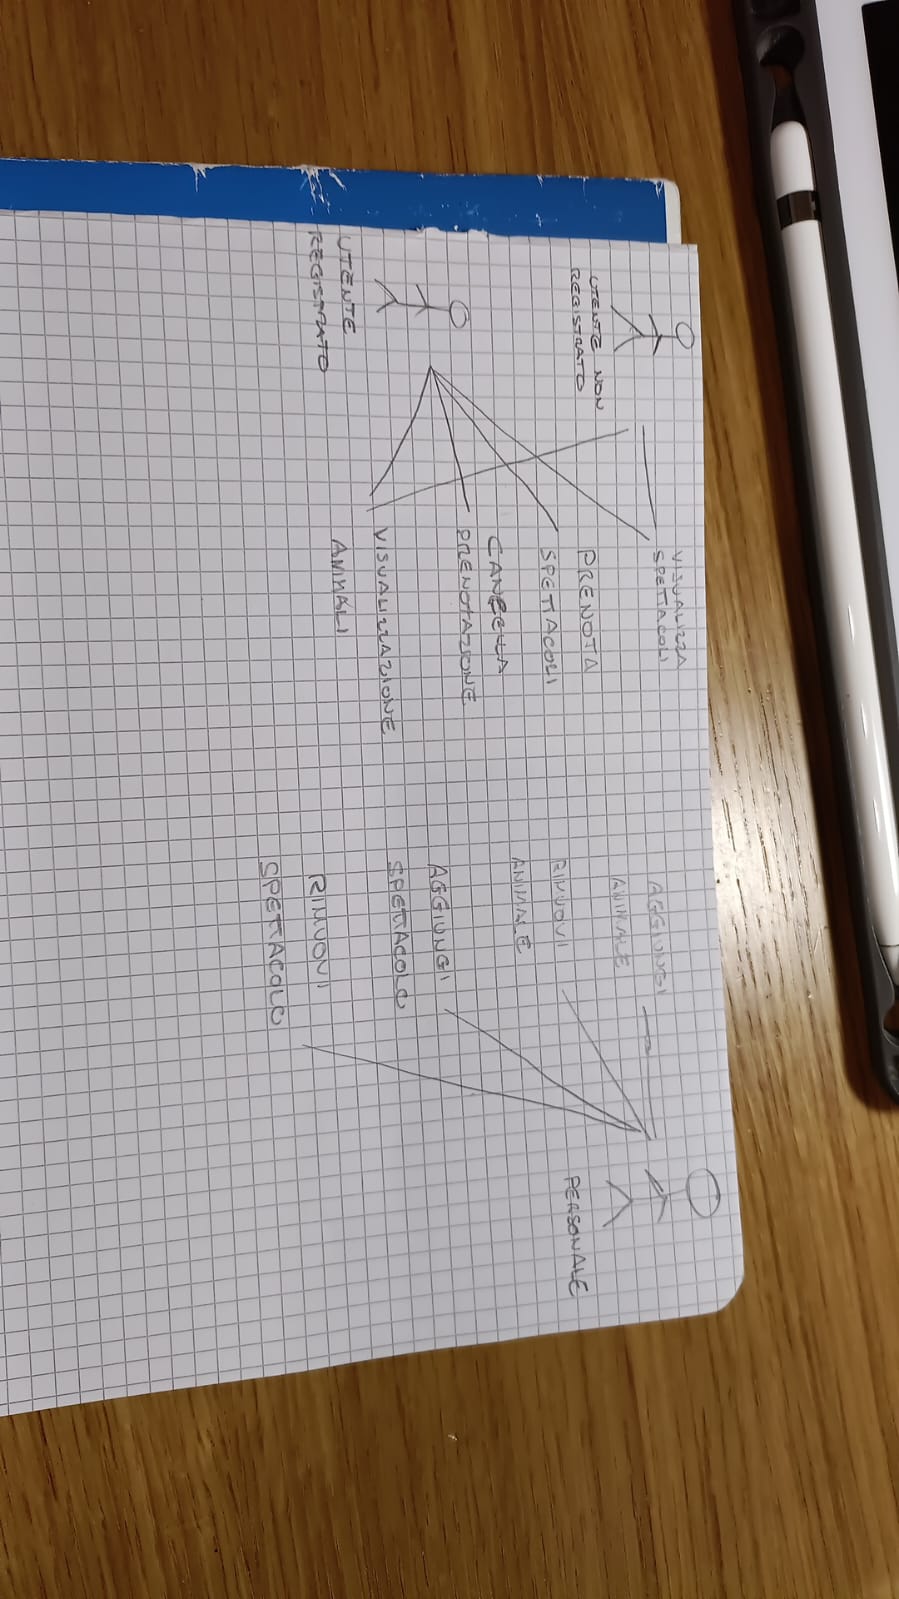 UTENTE NON
REGISTRATO
UTENTE
REGISTRATO
VISUALIZZA
SPETTACOLI
PRENOTA
SPETTACOLI
CANCELLA
PRENOTAZIONE
VISUALIZZAZIONE
ANIMALI
AGGIUNGI
ANIMALE
RIMUOVI
ANIMALE
AGGIUNGI
SPETTACOLO
RIMUOVI
SPETTACOLO
PERSONALE